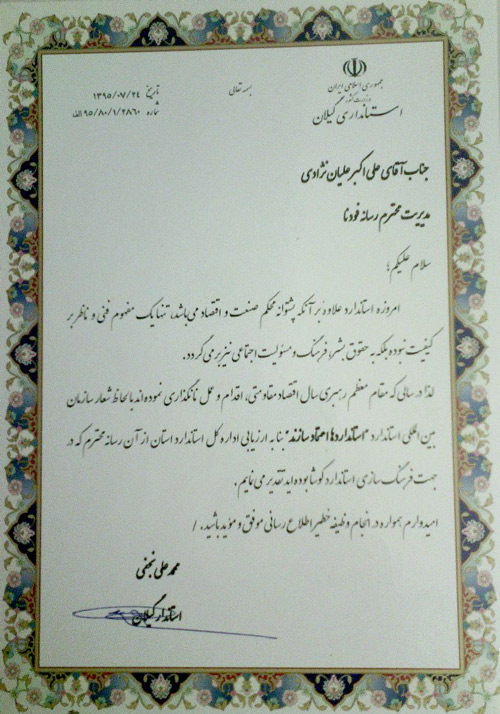 بسمه تعالی
جمهوری اسلامی ایران
وزارت کشور
استانداری گیلان
تاریخ ۱۳۹۵/۰۷/۲۴
شماره ۹۵/۸۰/۱/۲۸۶۰ الف
جناب آقای علی اکبر علیان نژادی
مدیریت محترم رسانه فودنا
سلام علیکم؛
امروزه استاندارد علاوه بر آنکه پشتوانه محکم صنعت و اقتصاد می‌باشد، تنها یک مفهوم فنی و ناظر بر
کیفیت نبوده بلکه به حقوق بشر، فرهنگ و مسئولیت اجتماعی نیز بر می گردد.
لذا در سالی که مقام معظم رهبری سال اقتصاد مقاومتی، اقدام و عمل نامگذاری نموده اند با لحاظ شعار سازمان
بین المللی استاندارد "استانداردها اعتماد سازند" بنا به ارزیابی اداره کل استاندارد استان از آن رسانه محترم که در
جهت فرهنگ سازی استاندارد کوشا بوده اید تقدیر می نمایم.
امیدوارم همواره در انجام وظیفه خطیر اطلاع رسانی موفق و مؤید باشید. /
محمد علی نجفی
استاندار گیلان